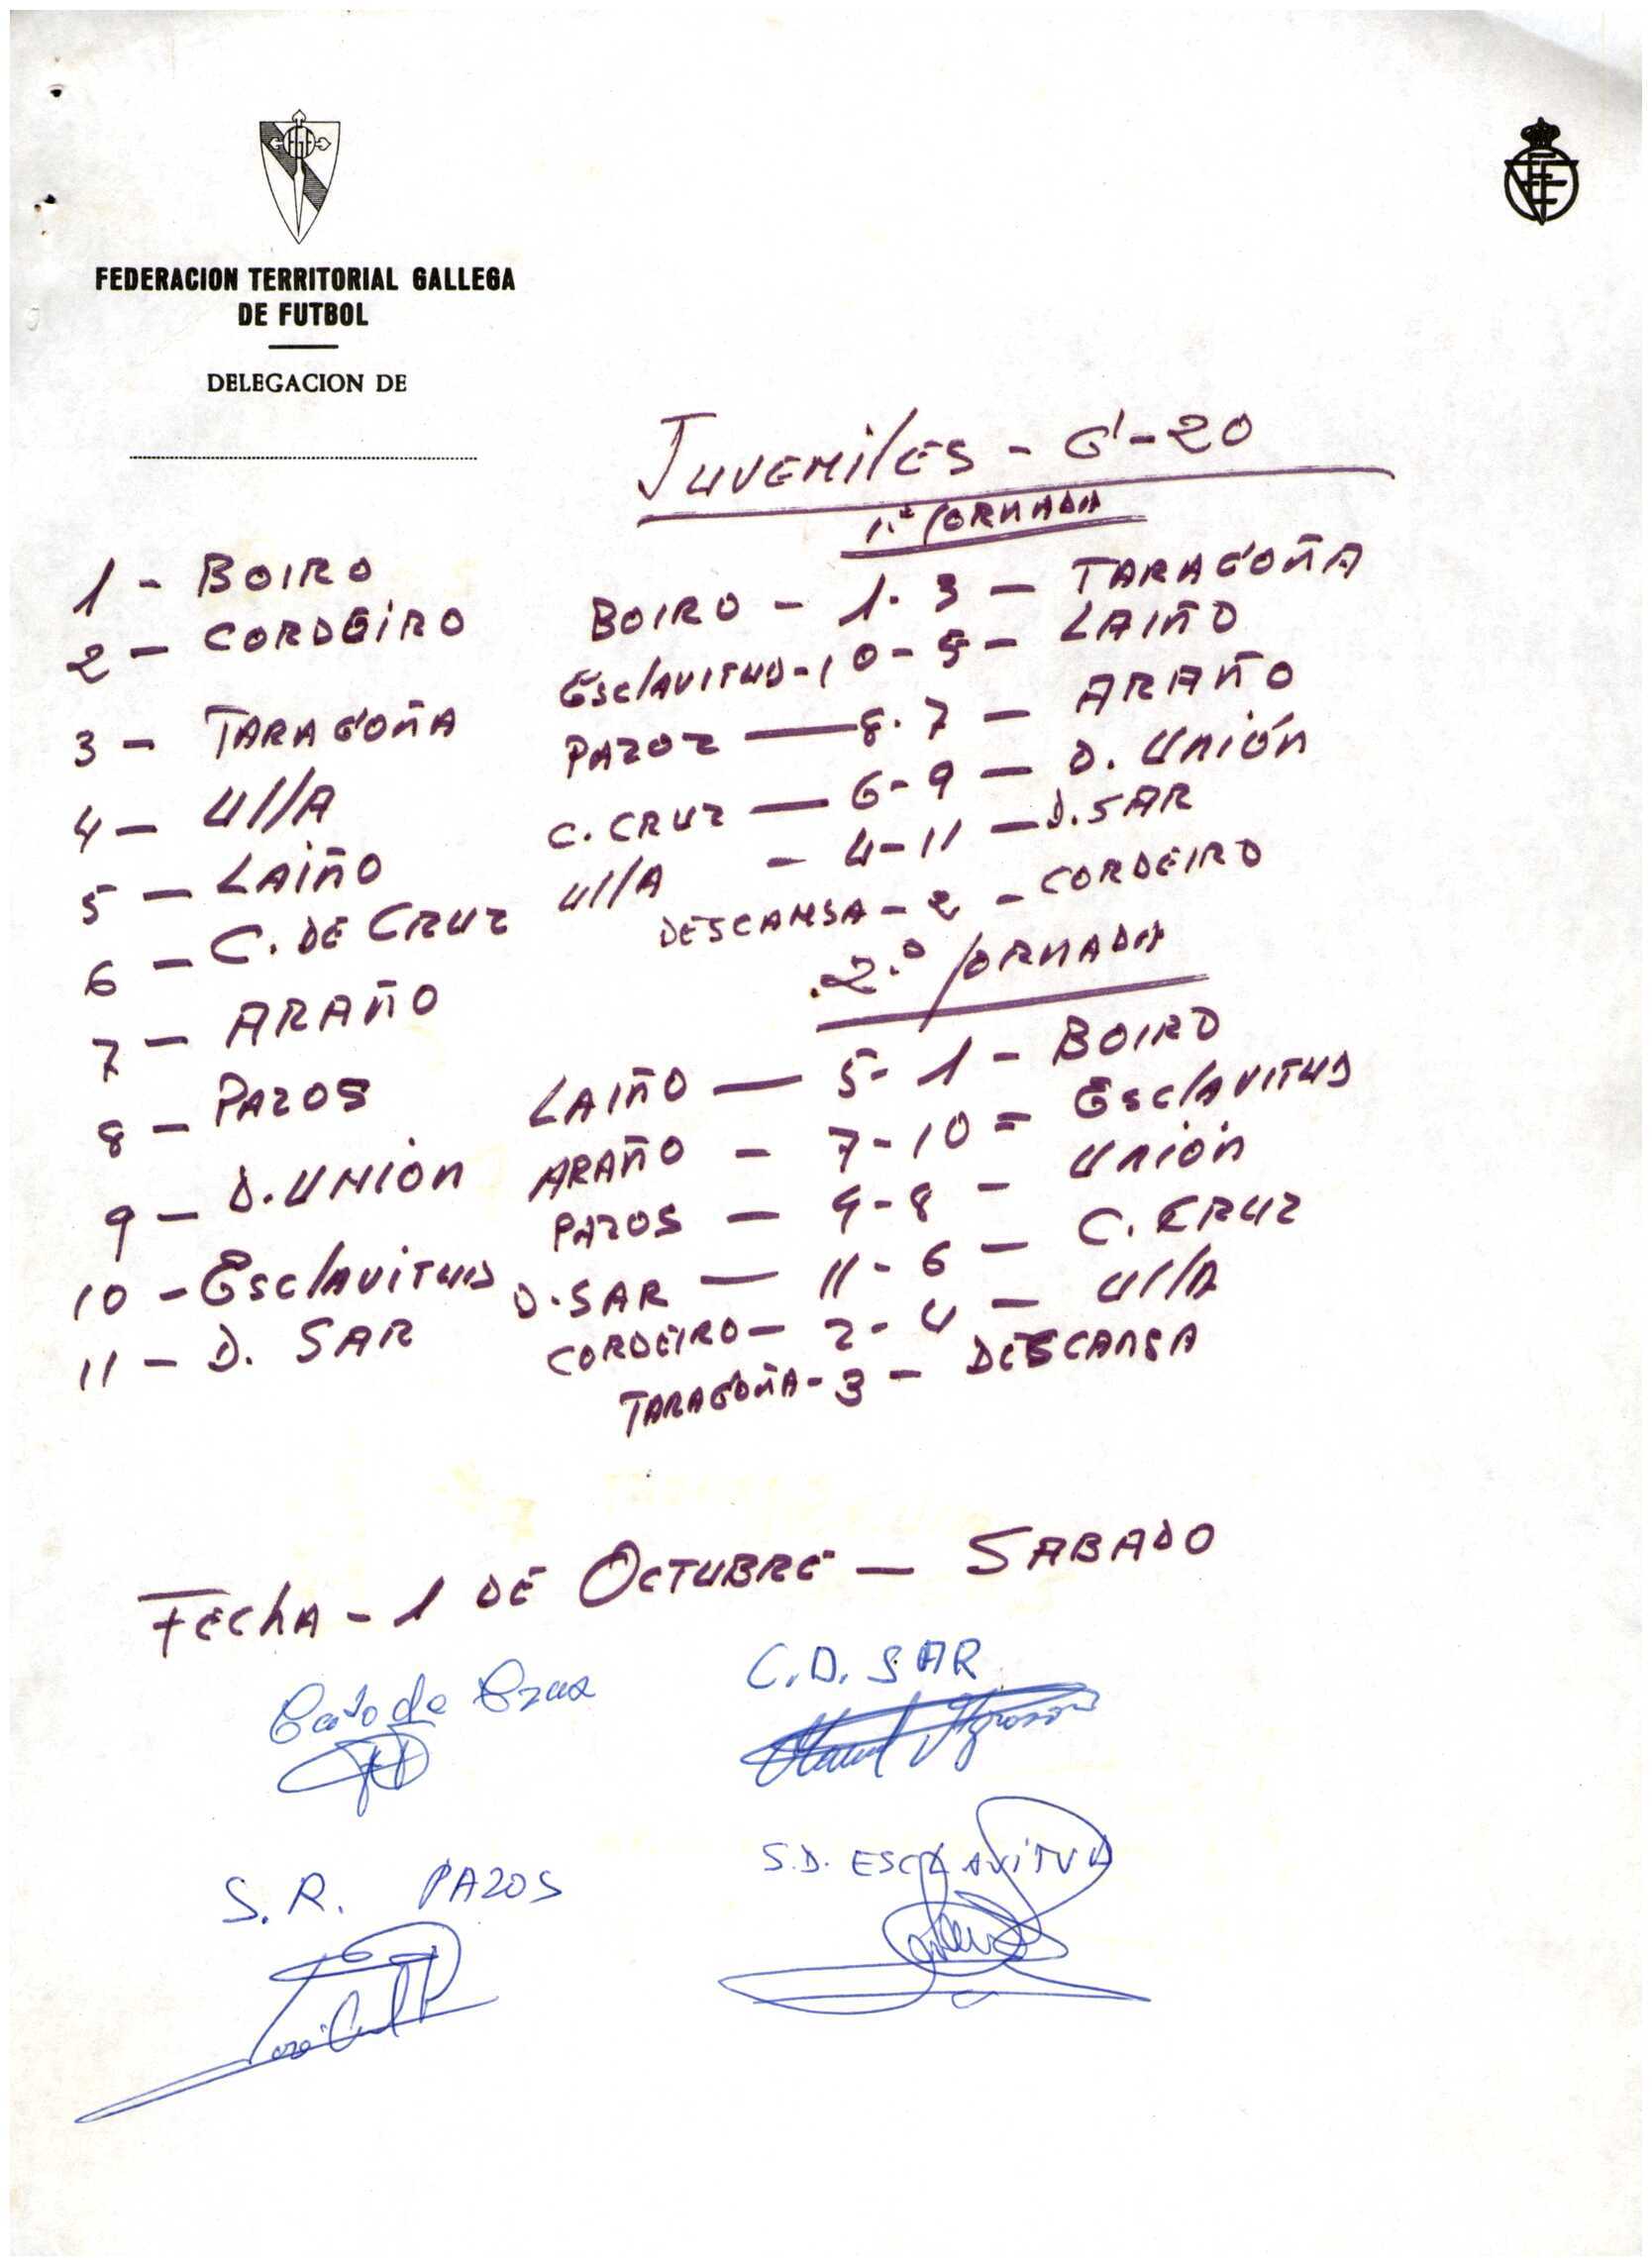 FGF
FEDERACION TERRITORIAL GALLEGA
DE FUTBOL
DELEGACION DE
JUVENILES - G-20
1.ª JORNADA
1 - BOIRO
2 - CORDEIRO
3 - TARAGOÑA
4 - UllA
5 - LAIÑO
6 - C. DE CRUZ
7 - ARAÑO
8 - PAZOS
9 - D. UNION
10 - EsclAVITUD
11 - D. SAR
BOIRO - 1 - 3 - TARAGOÑA
EsclAVITUD - 10 - 5 - LAIÑO
PAZOZ - 8 - 7 - ARAÑO
C. CRUZ - 6 - 9 - D. UNIÓN
UllA - 4 - 11 - D. SAR
DESCANSA - 2 - CORDEIRO
2.ª JORNADA
LAIÑO - 5 - 1 - BOIRO
ARAÑO - 7 - 10 = EsclAVITUD
PAZOS - 9 - 8 - UNIÓN
D. SAR - 11 - 6 - C. CRUZ
CORDEIRO - 2 - 4 - UllA
TARAGOÑA - 3 - DESCANSA
FECHA - 1 DE OCTUBRE - SABADO
Casto de Cruz
C.D. SAR
S.R. PAZOS
S.D. ESCLAVITUD